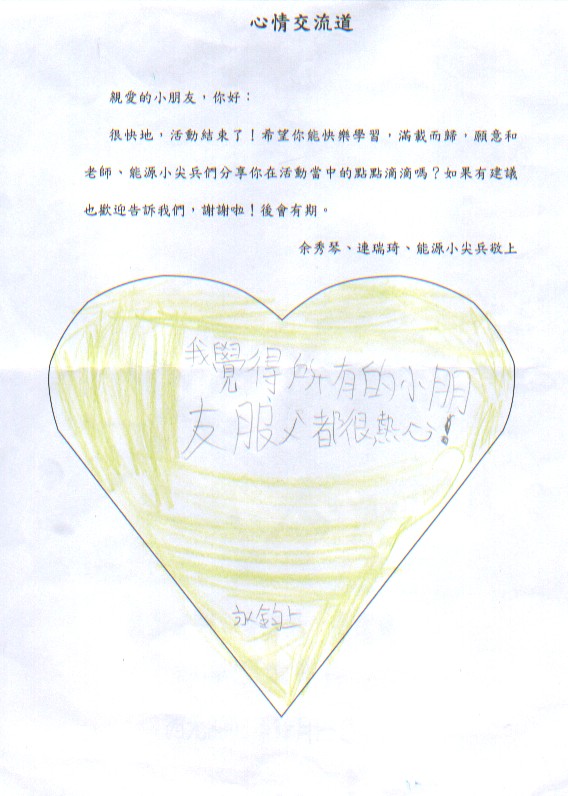 心情交流道
親愛的小朋友，你好：
很快地，活動結束了！希望你能快樂學習，滿載而歸，願意和
老師、能源小尖兵們分享你在活動當中的點點滴滴嗎？如果有建議
也歡迎告訴我們，謝謝啦！後會有期。
余秀琴、連瑞琦、能源小尖兵敬上
我覺得所有的小朋
友服父都很熱心！
永鈞上